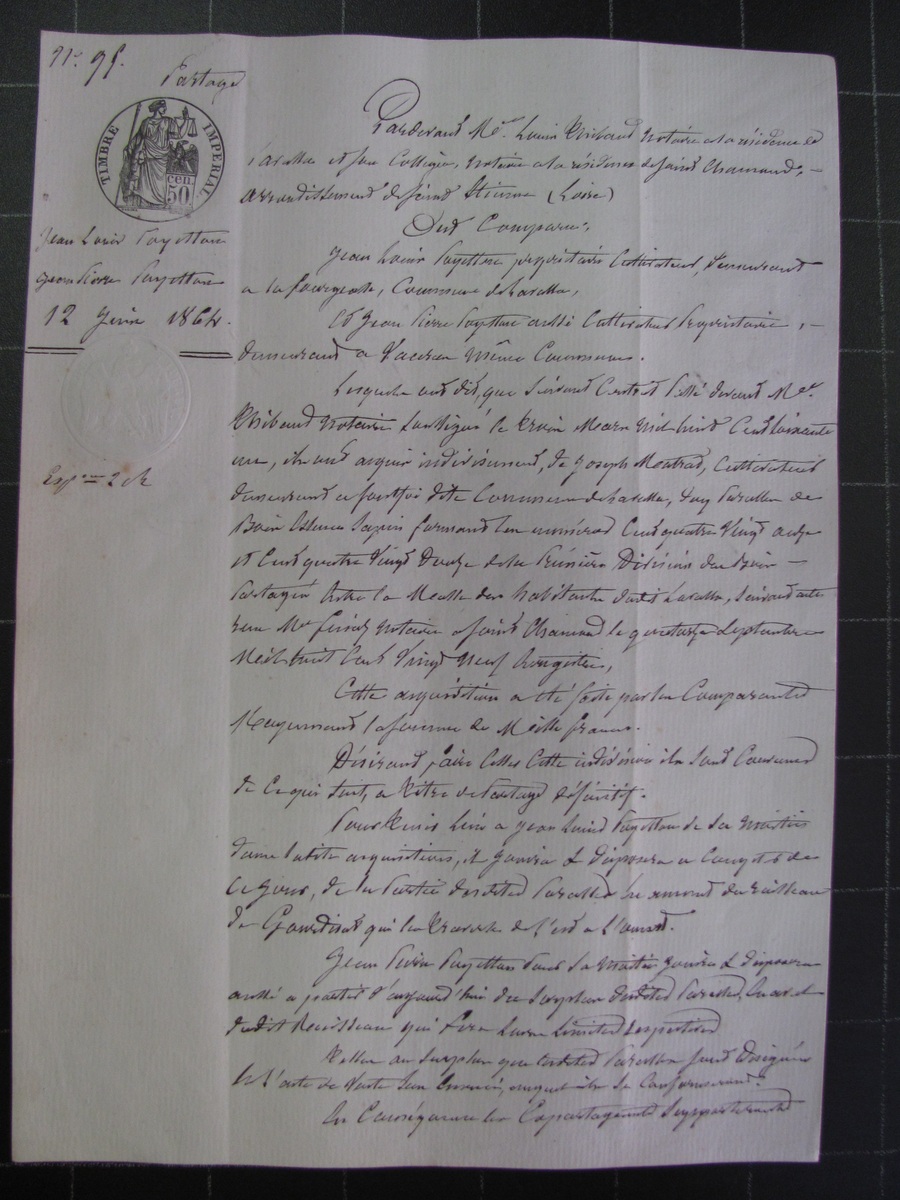 N.° 95.
Partage
TIMBRE IMPERIAL
50 cen.
Jean Louis Payetton
Jean Pierre Payetton
12 Juin 1864.
Par devant Me. Louis notaire à la résidence de
et son Collègue, notaire à la résidence de Saint Chamond,
arrondissement de Saint Etienne (Loire)
Ont Comparu:
Jean Louis Payetton propriétaire Cultivateur, demeurant
a la Commune de
Et Jean Pierre Payetton aussi Cultivateur Propriétaire,
demeurant a même Commune.
Lesquels ont dit, que Suivant Contrat passé devant Me.
notaire Soussigné le trois Mars mil huit Cent soixante
un, ils ont acquis indivisément, de Joseph Cultivateur
demeurant a dite Commune de parcelles de
Bois Essence Sapin formant les numéros Cent quatre Vingt onze
et Cent quatre Vingt Douze de la Division des Bois
Partagés Entre la Masse des habitants dudit Suivant acte
reçu Me notaire a Saint Chamond le quatorze Septembre
Mil huit Cent Vingt Neuf Enregistré,
Cette acquisition a été faite par les Comparants
Moyennant la somme de Mille francs.
Désirant faire Cesser Cette indivision ils Sont Convenus
de Ce qui Suit, a titre de Partage définitif.
Pour Jean Louis Payetton de Sa Moitié
dans ladite acquisition, il jouira & disposera a Compter de
Ce jour, de la Partie desdites Parcelles en amont du ruisseau
de qui les traverse de l'Est a l'ouest.
Jean Pierre Payetton pour Sa Moitié jouira & disposera
aussi a partir d'aujourd'hui du Surplus desdites Parcelles, en aval
dudit Ruisseau qui Sera Leurs Limites respectives
Telles au Surplus que lesdites Parcelles Sont Désignées
En l'acte de Vente Sus Enoncé, auquel ils Se Conformeront.
En Conséquence les Copartageants